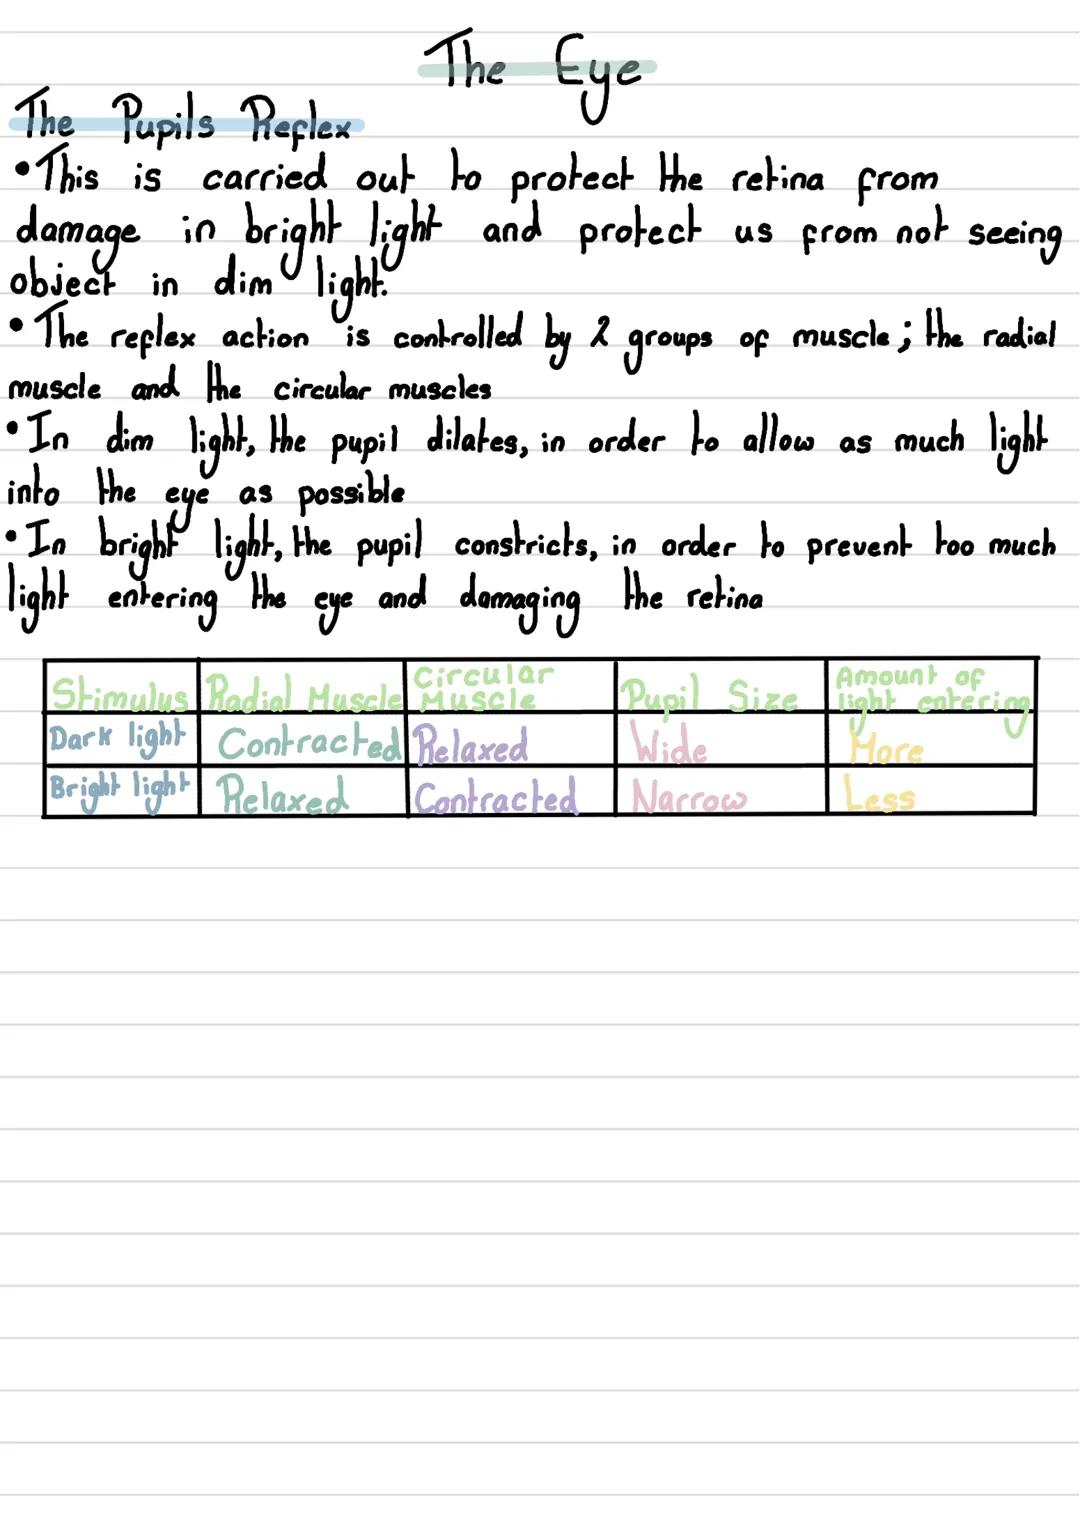 The Eye
The Pupils Reflex
•This is carried out to protect the retina from
damage in bright light and protect us from not seeing
object in dim light.
• The reflex action is controlled by 2 groups of muscle; the radial
muscle and the circular muscles
•In dim light, the pupil dilates, in order to allow as much light
into the eye as possible
•In bright light, the pupil constricts, in order to prevent too much
light entering the eye and damaging the retina
Stimulus Radial Muscle Circular Muscle Pupil Size Amount of light entering
Dark light Contracted Relaxed Wide More
Bright light Relaxed Contracted Narrow Less